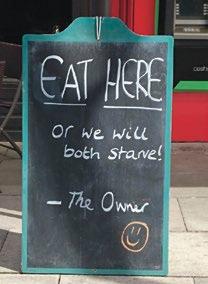 EAT HERE
Or we will
both starve!
- The Owner